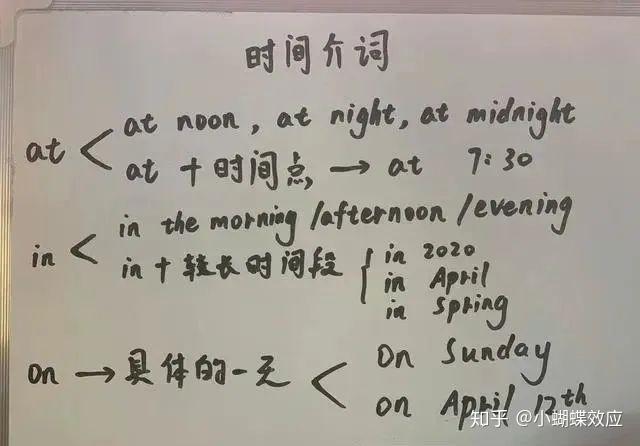 时间介词
at noon, at night, at midnight
at
at + 时间点 → at 7:30
in the morning /afternoon /evening
in
in + 较长时间段
in 2020
in April
in Spring
on → 具体的一天
on Sunday
on April 12th
知乎 @小蝴蝶效应